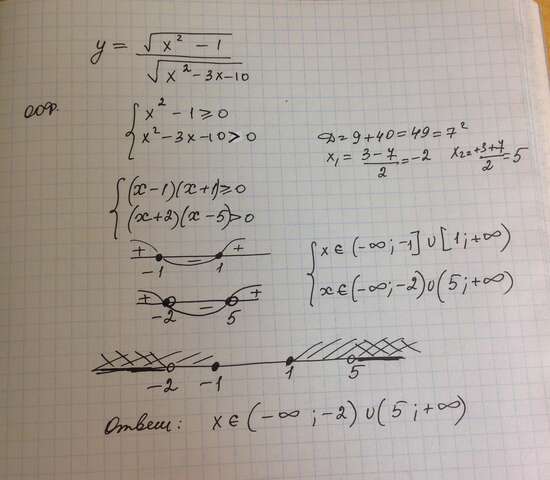 y = √(x² - 1) / √(x² - 3x - 10)
ООФ.
{ x² - 1 ≥ 0
x² - 3x - 10 > 0
D = 9 + 40 = 49 = 7²
x₁ = (3 - 7)/2 = -2 x₂ = (+3 + 7)/2 = 5
{ (x - 1)(x + 1) ≥ 0
(x + 2)(x - 5) > 0
+ - +
-1 1
+ - +
-2 5
{ x ∈ (-∞; -1] ∪ [1; +∞)
x ∈ (-∞; -2) ∪ (5; +∞)
-2 -1 1 5
Ответ: x ∈ (-∞; -2) ∪ (5; +∞)